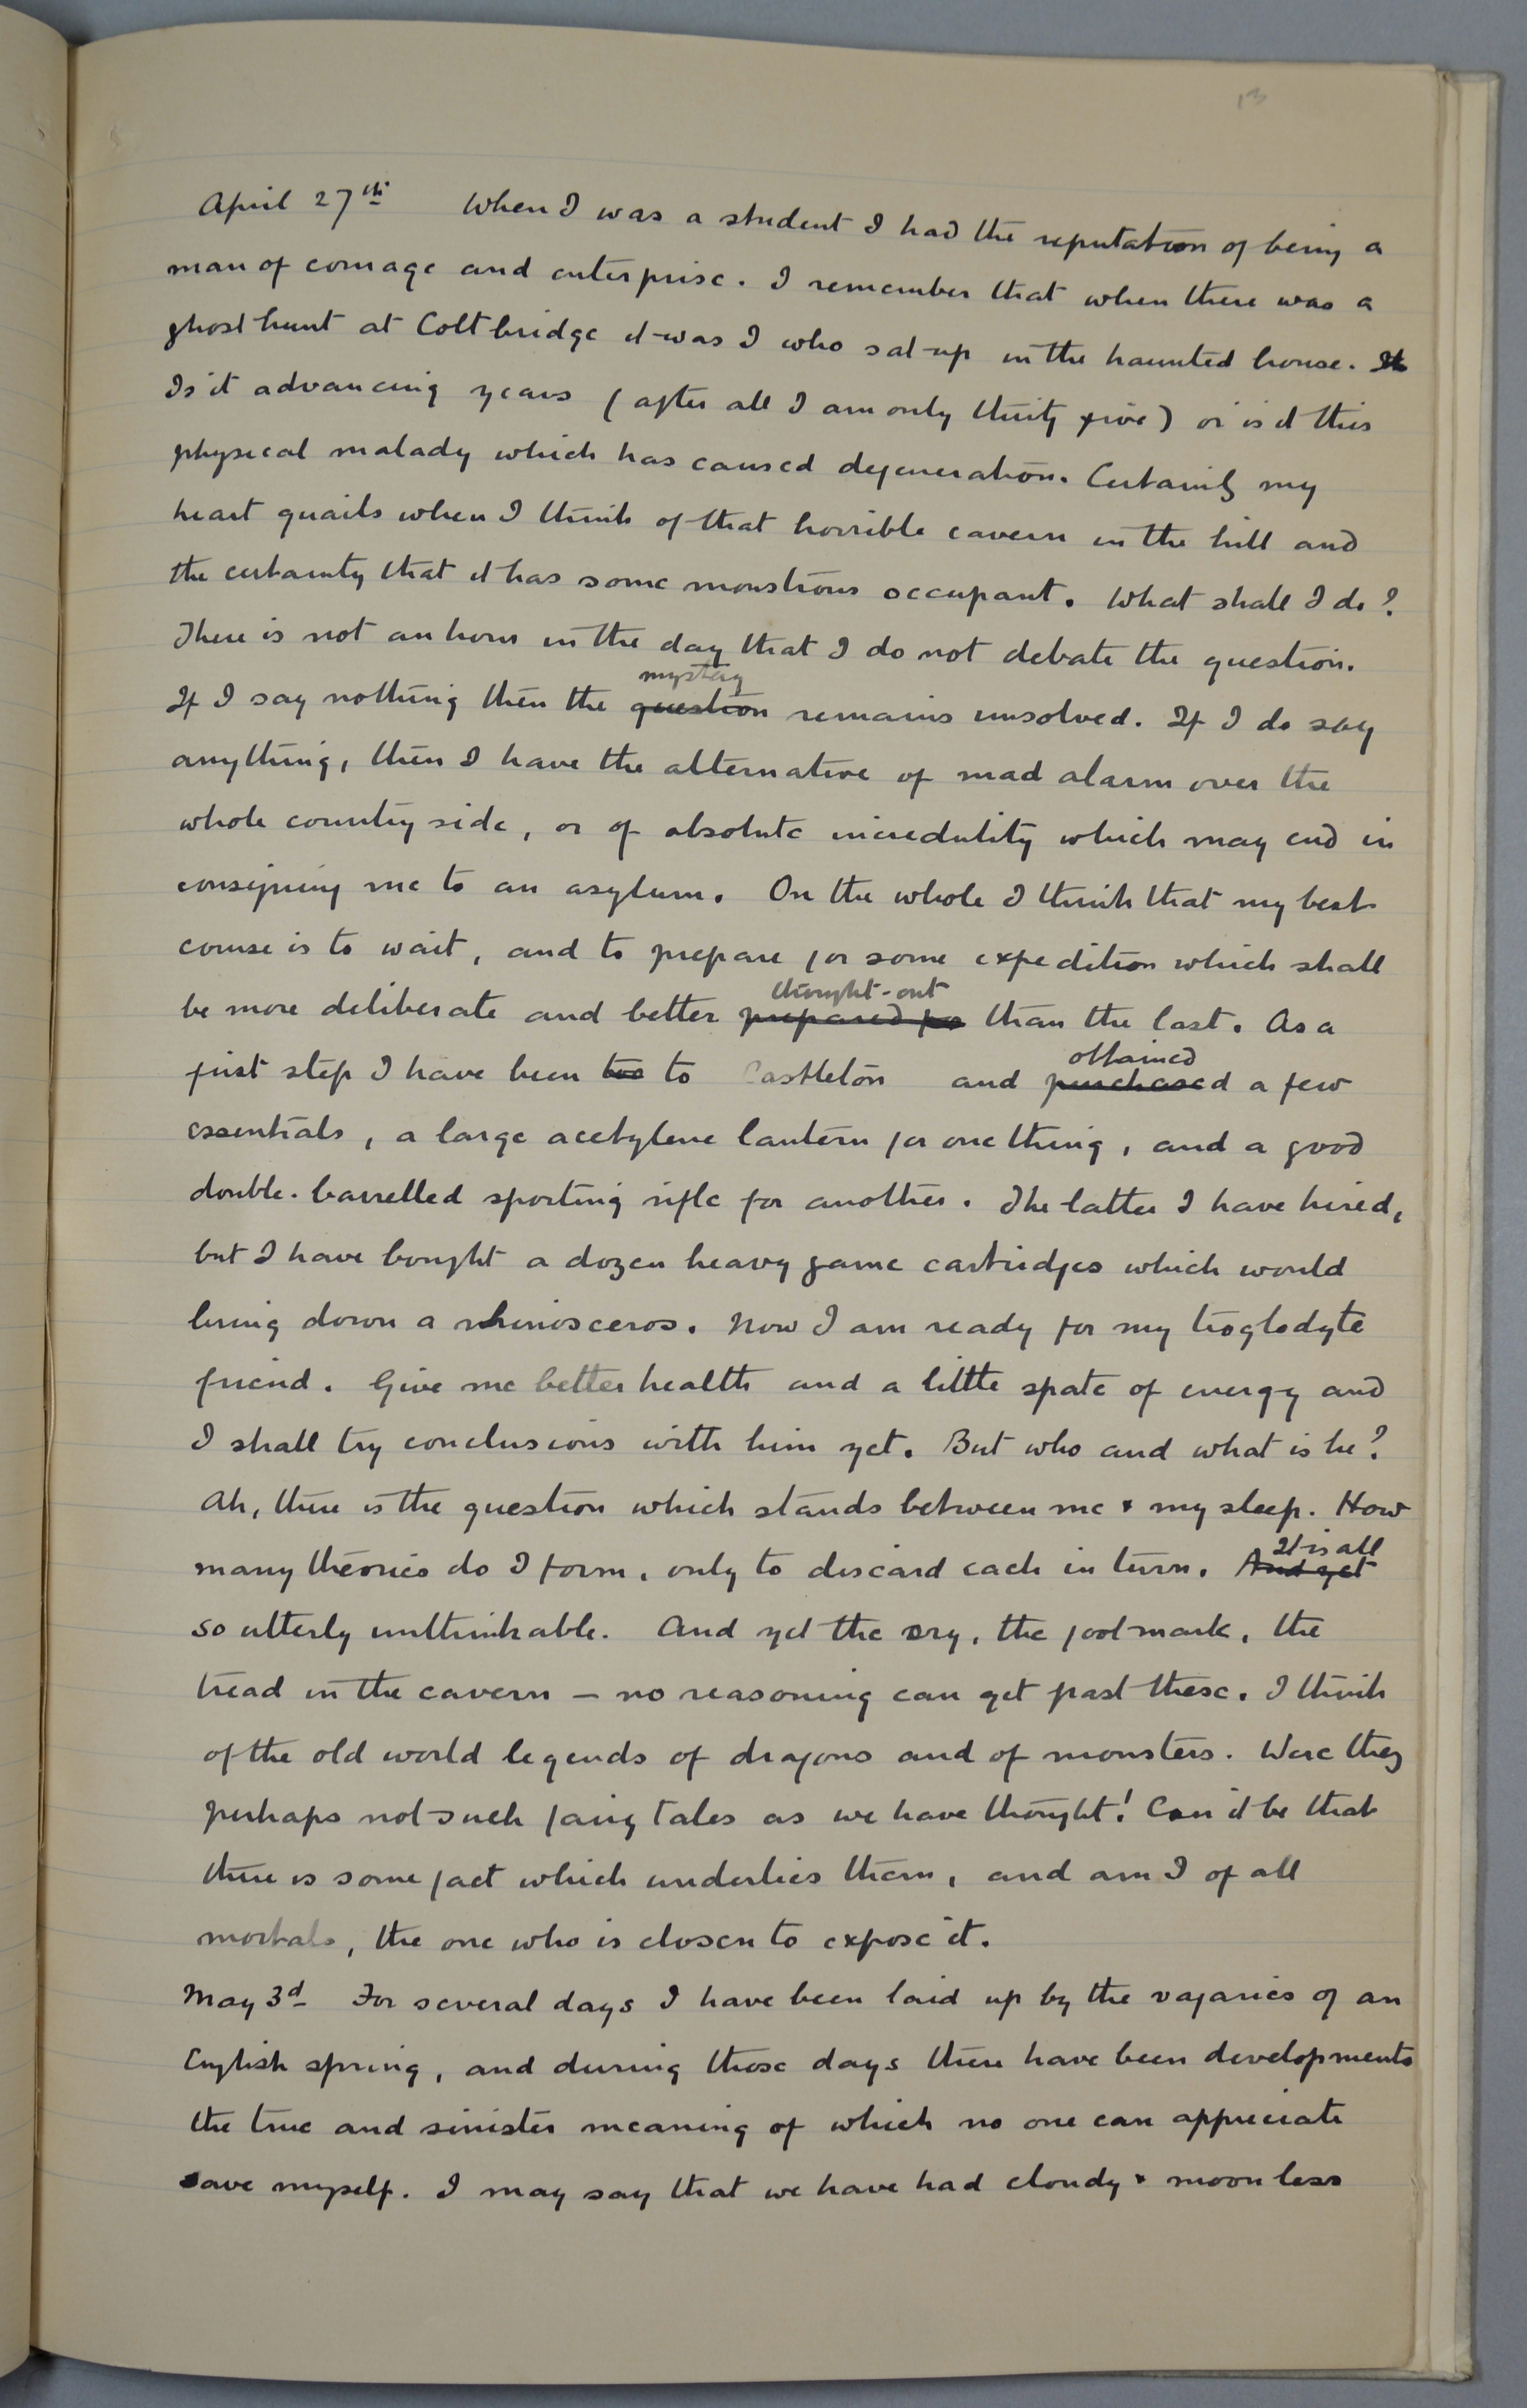 13
April 27th When I was a student I had the reputation of being a
man of courage and enterprise. I remember that when there was a
ghost hunt at Coltbridge it was I who sat up in the haunted house. It
Is it advancing years (after all I am only thirty five) or is it this
physical malady which has caused degeneration. Certainly my
heart quails when I think of that horrible cavern in the hill and
the certainty that it has some monstrous occupant. What shall I do?
There is not an hour in the day that I do not debate the question.
mystery
If I say nothing then the question remains unsolved. If I do say
anything, then I have the alternative of mad alarm over the
whole country side, or of absolute incredulity which may end in
consigning me to an asylum. On the whole I think that my best
course is to wait, and to prepare for some expedition which shall
thought-out
be more deliberate and better prepared for than the last. As a
obtained
first step I have been too to Castleton and purchased a few
essentials, a large acetylene lantern for one thing, and a good
double-barrelled sporting rifle for another. The latter I have hired,
but I have bought a dozen heavy game cartridges which would
bring down a rhinosceros. Now I am ready for my troglodyte
friend. Give me better health and a little spate of energy and
I shall try conclusions with him yet. But who and what is he?
Ah, there is the question which stands between me & my sleep. How
It is all
many theories do I form, only to discard each in turn. And yet
so utterly unthinkable. And yet the cry, the footmark, the
tread in the cavern – no reasoning can get past these. I think
of the old world legends of dragons and of monsters. Were they
perhaps not such fairy tales as we have thought! Can it be that
there is some fact which underlies them, and am I of all
mortals, the one who is chosen to expose it.
May 3d For several days I have been laid up by the vagaries of an
English spring, and during those days there have been developments
the true and sinister meaning of which no one can appreciate
save myself. I may say that we have had cloudy & moonless